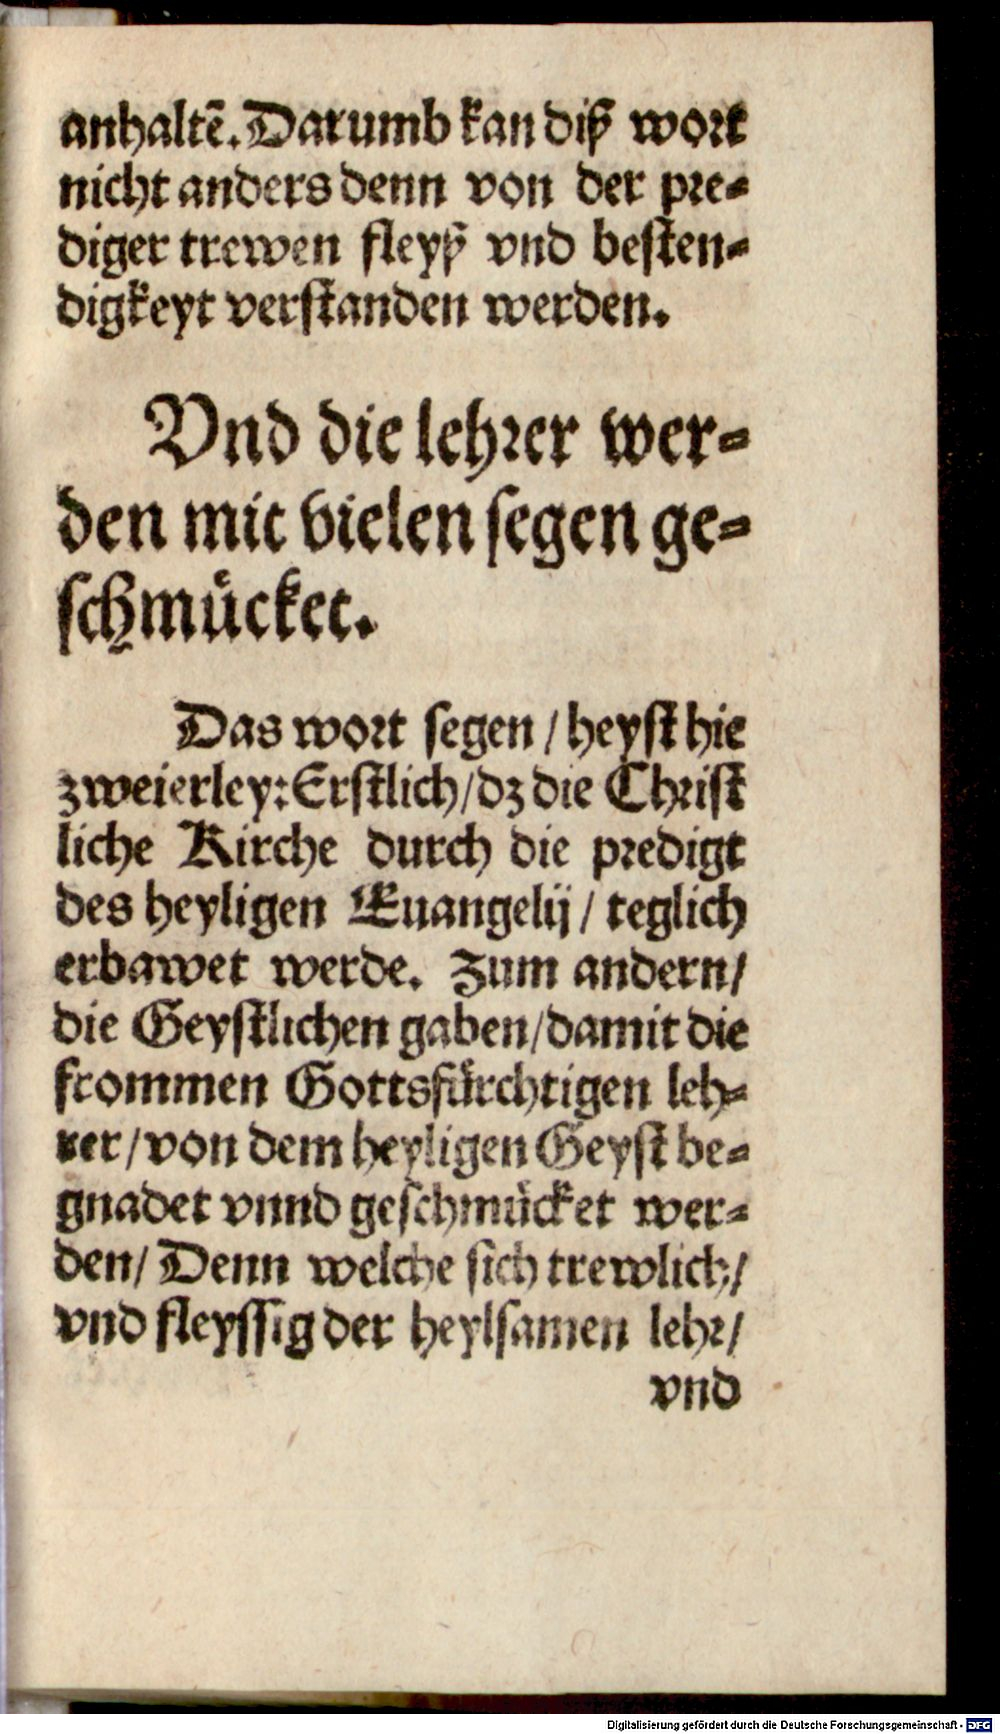 anhaltē. Darumb kan diß wort
nicht anders denn von der pre-
diger trewen fleyß vnd besten-
digkeyt verstanden werden.
Vnd die lehrer wer-
den mit vielen segen ge-
schmücket.
Das wort segen / heyst hie
zweierley: Erstlich / dz die Christ
liche Kirche durch die predigt
des heyligen Euangelij / teglich
erbawet werde. Zum andern /
die Geystlichen gaben / damit die
frommen Gottsfürchtigen leh-
rer / von dem heyligen Geyst be-
gnadet vnnd geschmücket wer-
den / Denn welche sich trewlich /
vnd fleyssig der heylsamen lehr /
vnd
Digitalisierung gefördert durch die Deutsche Forschungsgemeinschaft - DFG